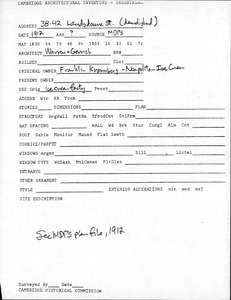 CAMBRIDGE ARCHITECTURAL INVENTORY - INDUSTRIAL
ADDRESS 38-42 Landsdowne St. (demolished)
DATE 1912 Add ? SOURCE MDPS
MAP 1830 54 73 86 94 1903 16 30 61 73
ARCHITECT Warren + Gerrish BP#
BUILDER Cost
ORIGINAL OWNER Franklin - Neapolitan Ice Cream
PRESENT OWNER
USE Orig Ice cream factory Present
ACCESS Wtr RR Trck
STORIES DIMENSIONS PLAN
STRUCTURE BrgWall Patfm RfrcdCnt StlFrm
BAY SPACING WALL Wd Brk Stuc Corgl Alm Cnt
ROOF Gable Monitor Mansd Flat Sawth
CORNICE/PARPET
WINDOWS Argmt Sill Lintel
WINDOW TYPE WdSash MtlCasmt PltGlss
ENTRANCE
OTHER ORNAMENT
STYLE EXTERIOR ALTERATIONS min med maj
SITE DESCRIPTION
See MDPS plan file, 1912
Surveyed By Date
CAMBRIDGE HISTORICAL COMMISSION